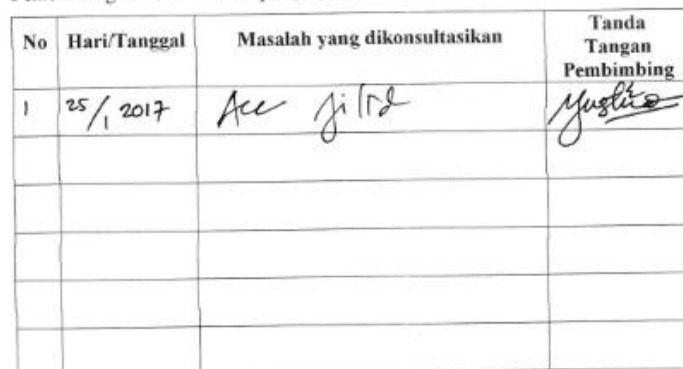 No Hari/Tanggal Masalah yang dikonsultasikan Tanda Tangan Pembimbing
1 25/1 2017 Acc jilid